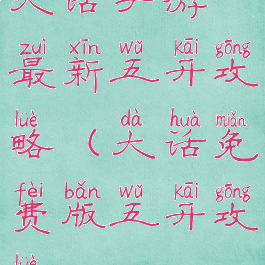 大话手游
zuì xīn wǔ kāi gōng
最新五开攻
lüè dà huà miǎn
略（大话免
fèi bǎn wǔ kāi gōng
费版五开攻
lüè